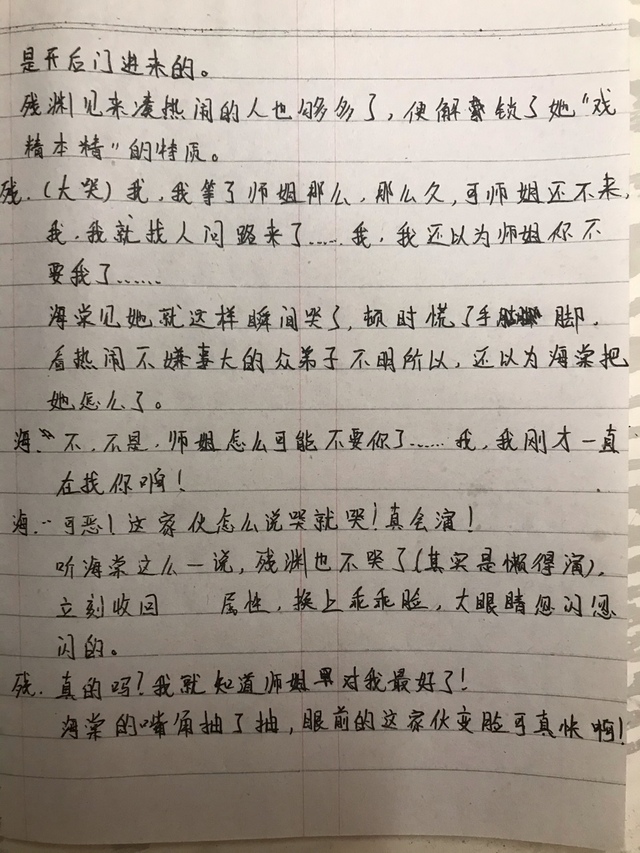 是开后门进来的。
残渊见来凑热闹的人也够多了，便解锁了她“戏
精本精”的特质。
残.（大哭）我，我等了师姐那么，那么久，可师姐还不来，
我，我就找人问路来了……我，我还以为师姐你不
要我了……
海棠见她就这样瞬间哭了，顿时慌了手脚，
看热闹不嫌事大的众弟子不明所以，还以为海棠把
她怎么了。
海. 不，不是，师姐怎么可能不要你了……我，我刚才一直
在找你啊！
海.…可恶！这家伙怎么说哭就哭！真会演！
听海棠这么一说，残渊也不哭了（其实是懒得演），
立刻收回 属性，换上乖乖脸，大眼睛忽闪忽
闪的。
残. 真的吗？我就知道师姐对我最好了！
海棠的嘴角抽了抽，眼前的这家伙变脸可真快啊！